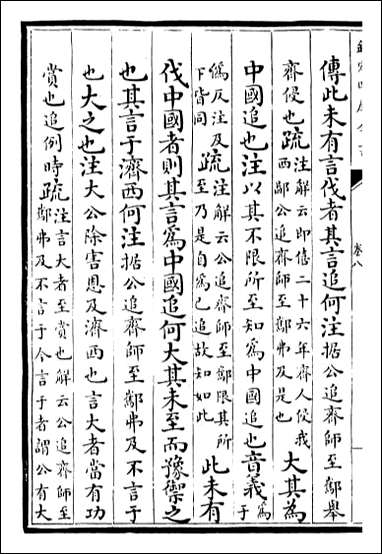 傳此未有言伐者其言追何注据公追齊師至酅舉
齊侵也疏注解云即僖二十六年齊人侵我西鄙公追齊師至酅弗及是也大其為
中國追也注以其不限所至知為中國追也音義為于
偽反注及下皆同疏注解云公追齊師至酅限其所至乃是自為己追故知如此此未有
伐中國者則其言為中國追何大其未至而豫禦之
也其言于濟西何注据公追齊師至酅弗及不言于
也大之也注大公除害恩及濟西也言大者當有功
賞也追例時疏注言大者至賞也解云公追齊師至酅弗及不言于今言于者謂公有大
卷八